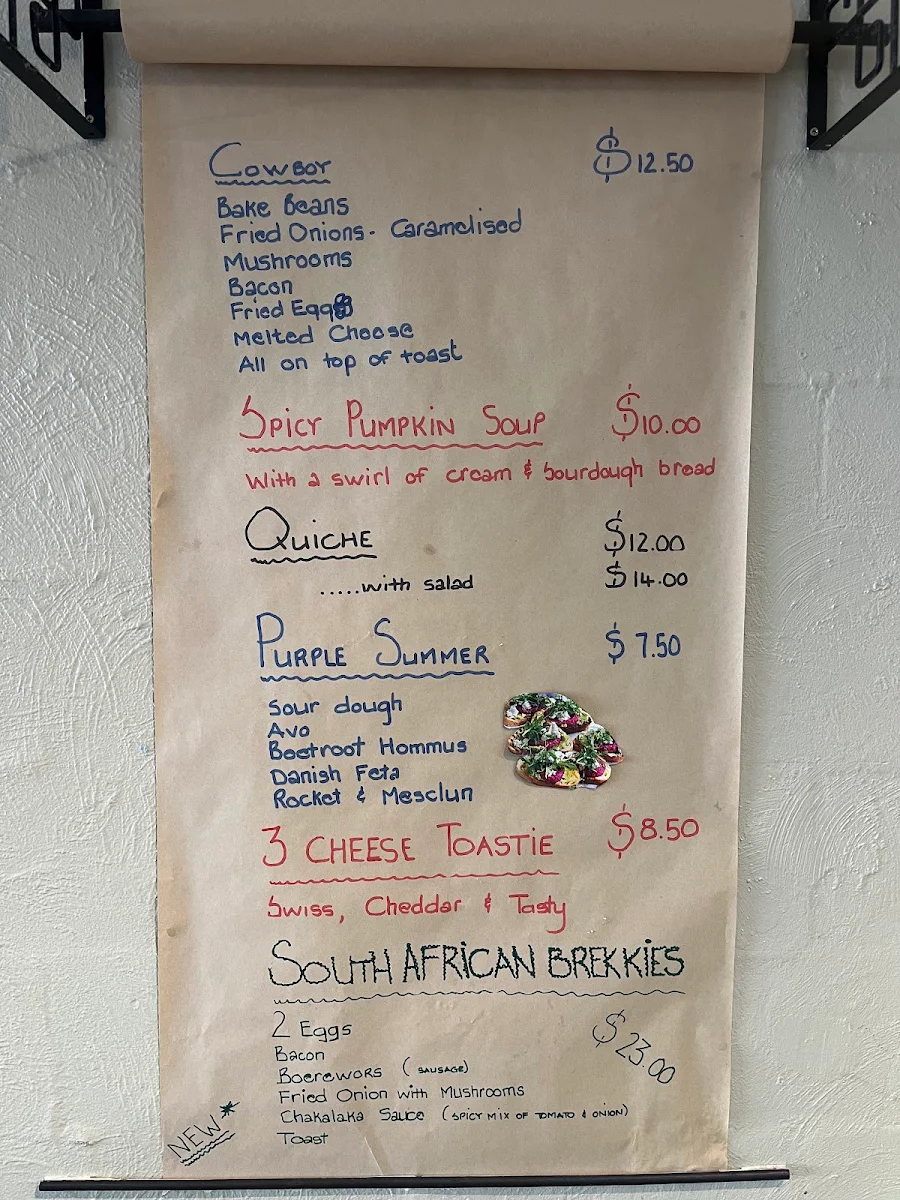 COWBOY $12.50
Bake Beans
Fried Onions - Caramelised
Mushrooms
Bacon
Fried Egg
Melted Cheese
All on top of toast
SPICY PUMPKIN SOUP $10.00
With a swirl of cream & Sourdough bread
QUICHE $12.00
.....with salad $14.00
PURPLE SUMMER $7.50
Sour dough
Avo
Beetroot Hommus
Danish Feta
Rocket & Mesclun
3 CHEESE TOASTiE $8.50
Swiss, Cheddar & Tasty
SOUTH AFRiCAN BREKKiES
2 Eggs $23.00
Bacon
Boerewors (SAUSAGE)
Fried Onion with Mushrooms
Chakalaka Sauce (SPICY MIX OF TOMATO & ONION)
Toast
NEW*